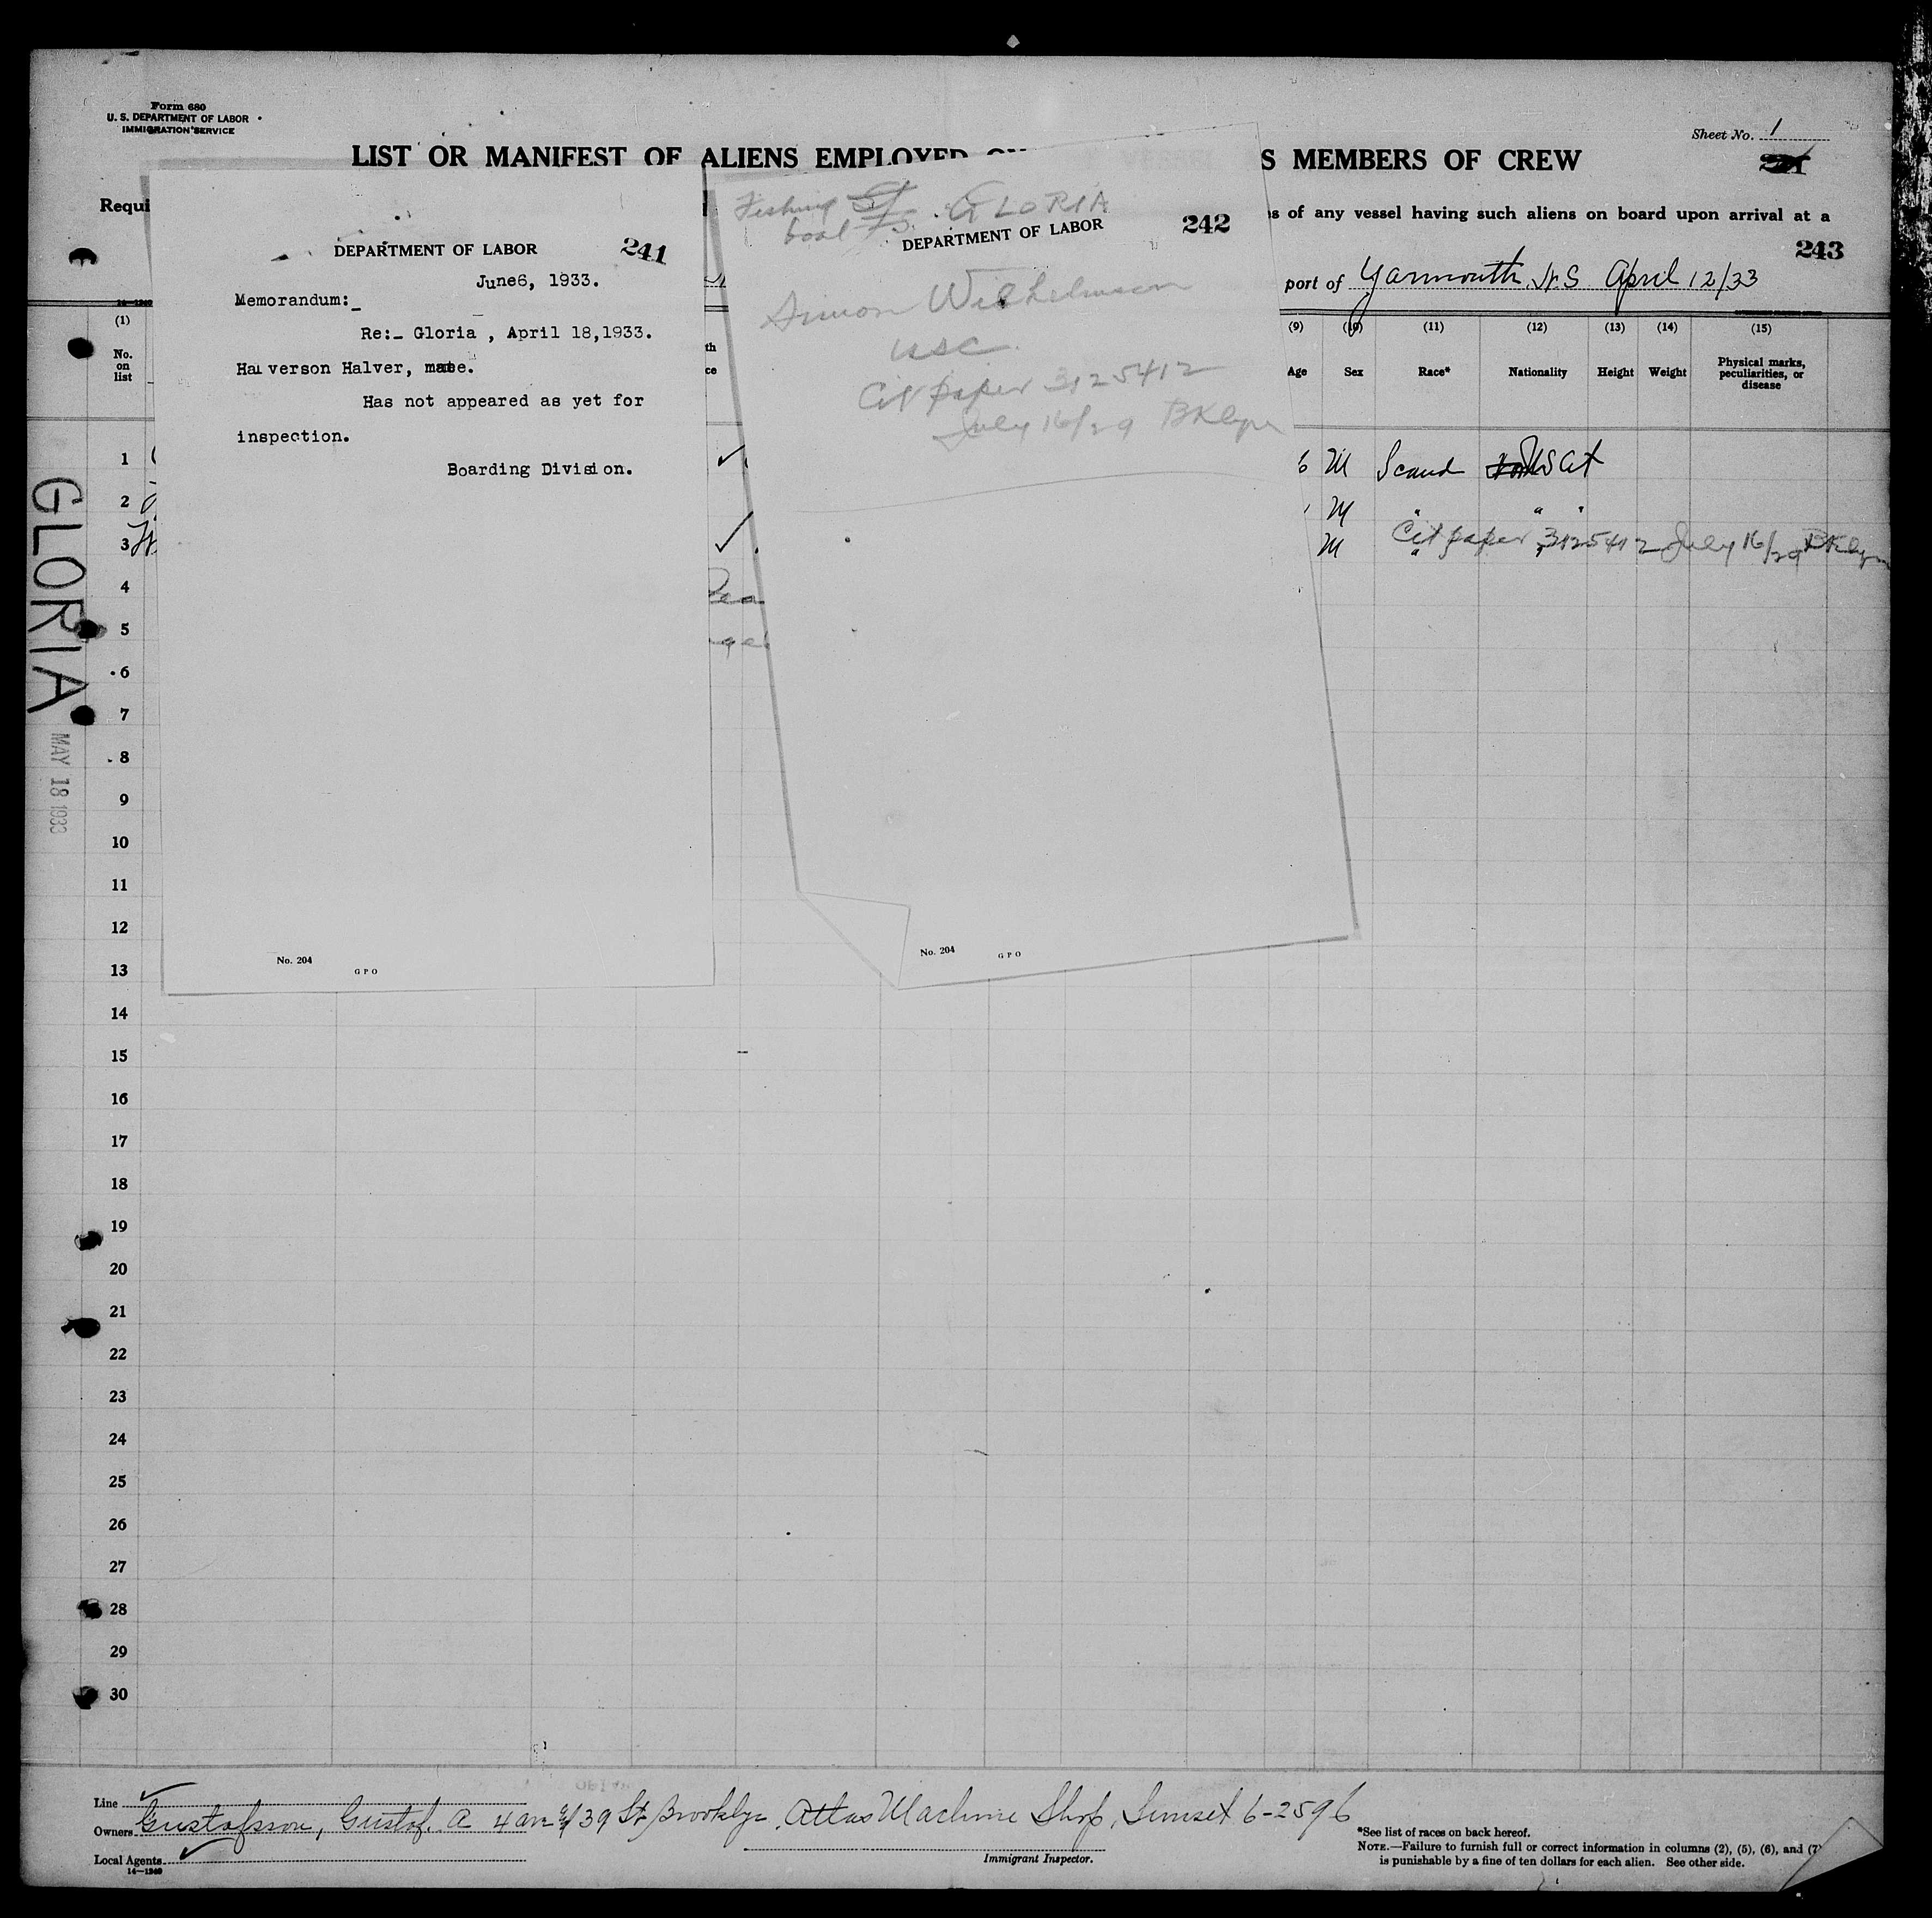 Form 680
U. S. DEPARTMENT OF LABOR
IMMIGRATION SERVICE
Sheet No. 1
LIST OR MANIFEST OF ALIENS EMPLOYED
S MEMBERS OF CREW
Requi
s of any vessel having such aliens on board upon arrival at a
243
port of Yarmouth, N.S April 12/33
DEPARTMENT OF LABOR
241
June6, 1933.
Memorandum:_
Re:_ Gloria , April 18,1933.
Halverson Halver, mate.
Has not appeared as yet for
inspection.
Boarding Division.
No. 204
GPO
Fishing
boat
GLORIA
242
DEPARTMENT OF LABOR
Simon Wilhelmson
USC
Cit paper 3125412
July 16/29 BKlyn
No. 204
GPO
(1)
No.
on
list
(9) (10) (11) (12) (13) (14) (15)
Age Sex Race* Nationality Height Weight Physical marks,
peculiarities, or
disease
1 6 M Scand US Cit
2 M " " "
3 M Cit paper 3125412 July 16/29 BKlyn
4
5
6
7
8
9
10
11
12
13
14
15
16
17
18
19
20
21
22
23
24
25
26
27
28
29
30
GLORIA
MAY 18 1933
Line
Owners Gustafsson, Gustof. A 4 ave & 39 St Brooklyn, Atlas Machine Shop, Sunset 6-2596
Local Agents
14—1240
Immigrant Inspector.
*See list of races on back hereof.
NOTE.—Failure to furnish full or correct information in columns (2), (5), (6), and (7)
is punishable by a fine of ten dollars for each alien. See other side.